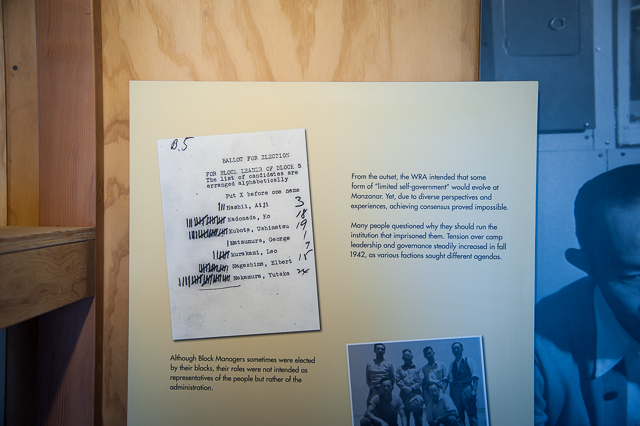 B.5
BALLOT FOR ELECTION
FOR BLOCK LEADER OF BLOCK 5
The list of candidates are
arranged alphabetically
Put X before one name
Hashii, Aiji 3
Kadonada, Ko 18
Kubota, Ushimatsu 19
Matsumura, George 1
Murakami, Leo 7
Nagashima, Elbert 15
Nakamura, Yutaka
Although Block Managers sometimes were elected
by their blocks, their roles were not intended as
representatives of the people but rather of the
administration.
From the outset, the WRA intended that some
form of "limited self-government" would evolve at
Manzanar. Yet, due to diverse perspectives and
experiences, achieving consensus proved impossible.
Many people questioned why they should run the
institution that imprisoned them. Tension over camp
leadership and governance steadily increased in fall
1942, as various factions sought different agendas.